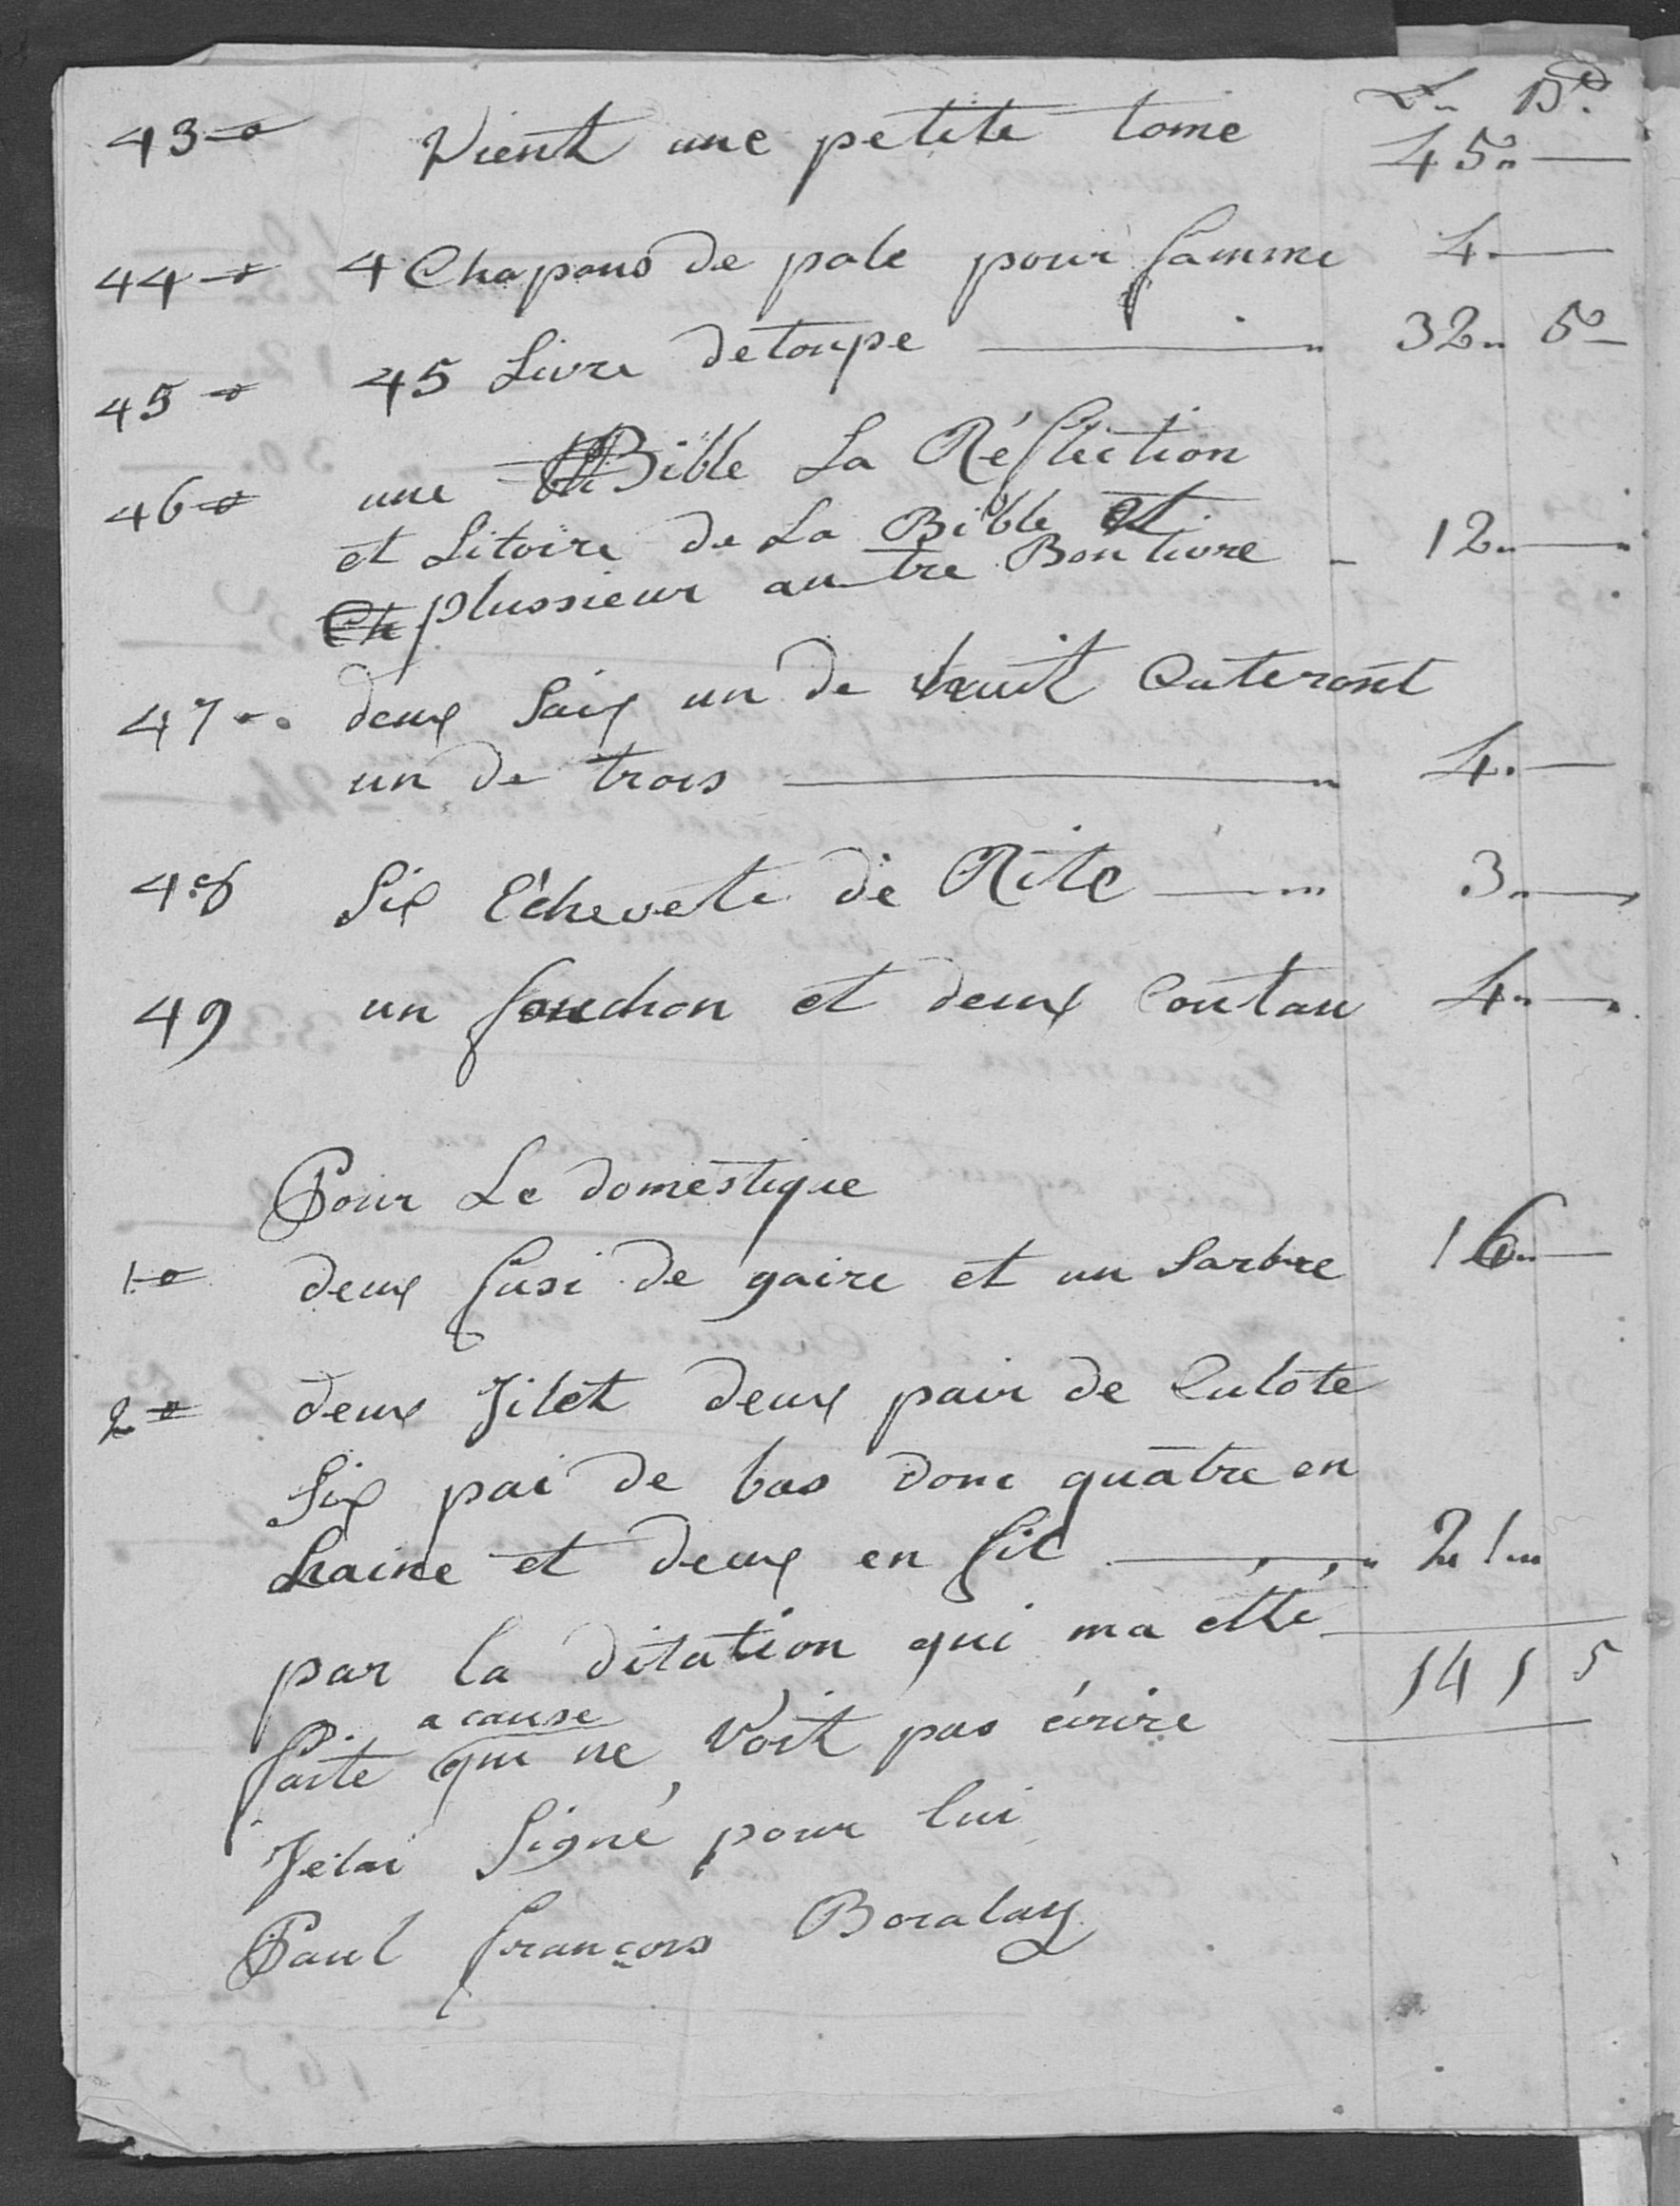 Ln Bd.
43 Vient une petite tome 45"
44 4 Chapaus de pale pour famme 4.
45 45 Livre detoupe 32" 5
46 une Bible La Réflection
et Litoire de La Bible et
plussieur autre Bon livre 12"
47 deux Saix un de huit Cuteront
un de trois 4.
48 Six Echevete de Rite 3"
49 un fouchon et deux Coutau 4"
Pour Le domestique
1 deux fusi de gaire et un Sarbre 16"
2 deux Jilet deux pair de Culote
Six pai de bas donc quatre en
Laine et deux en fil 21"
par la ditation qui ma etté
141 5
faite a cause qui ne Voit pas écrire
Jelai Signé pour lui
Paul françois Boralay